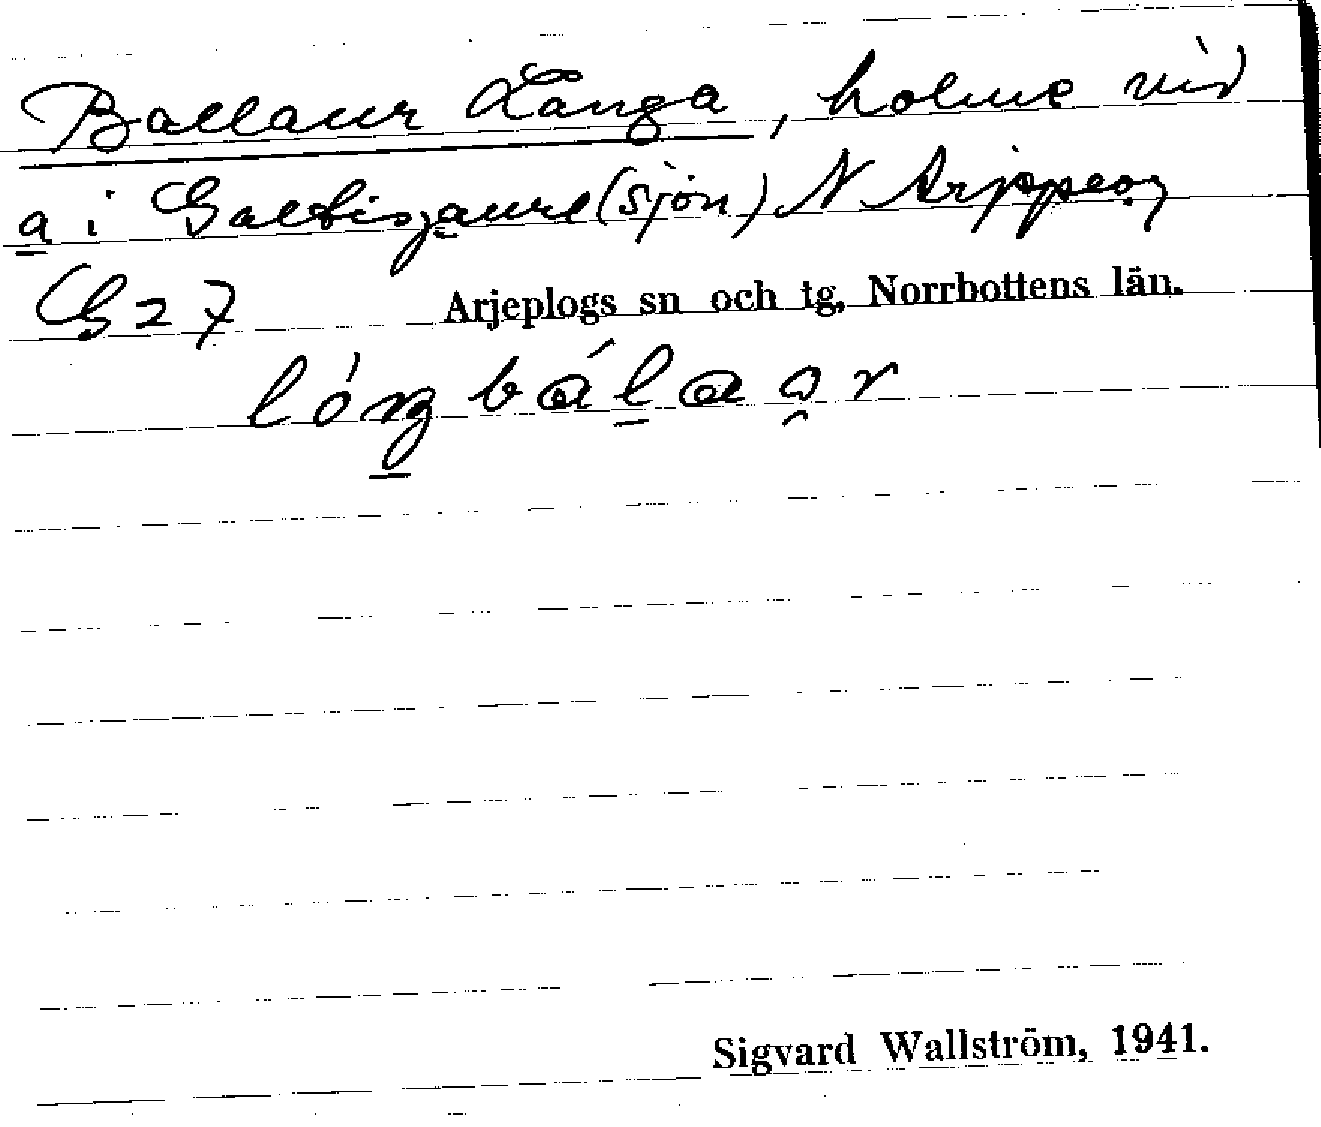 Ballaur Långa, holme vid
a i Galtisjaure (sjön) N Arjepeog
G 27 Arjeplogs sn och tg, Norrbottens län.
lóŋ bálaər
Sigvard Wallström, 1941.